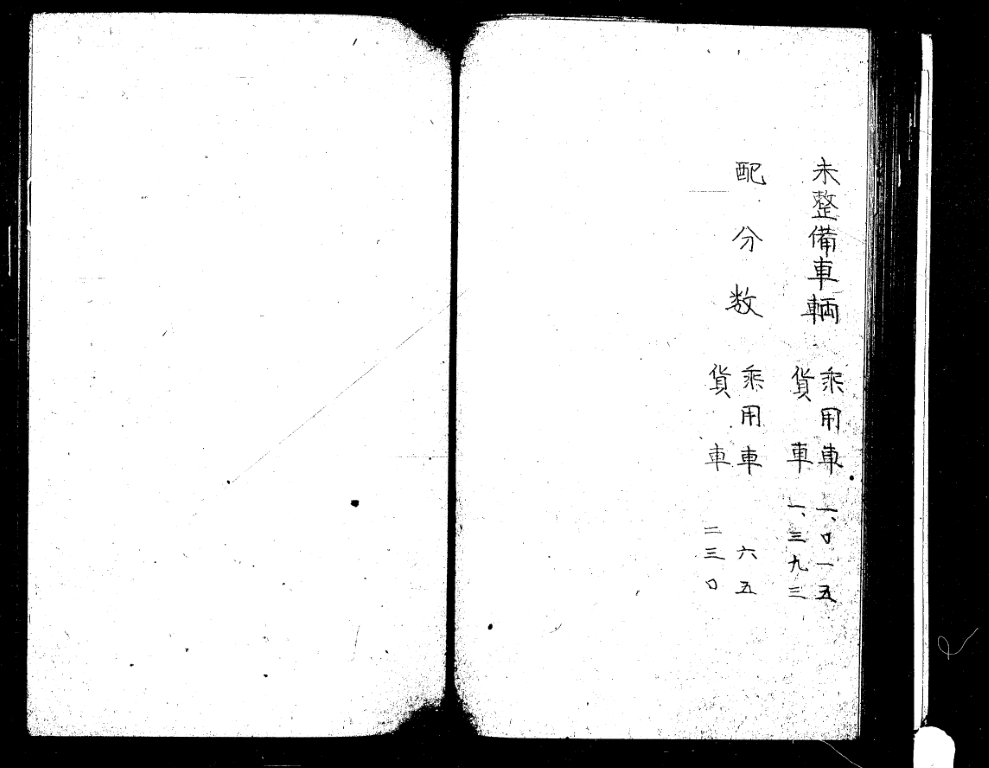 未整備車輌
乗用車 一、〇一五
貨車 一、三九三
配分数
乗用車 六五
貨車 二三〇